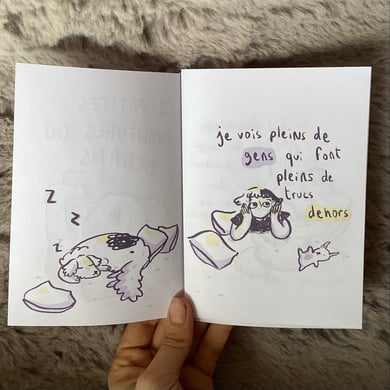 z
z
z
je vois pleins de
gens qui font
pleins de
trucs
dehors